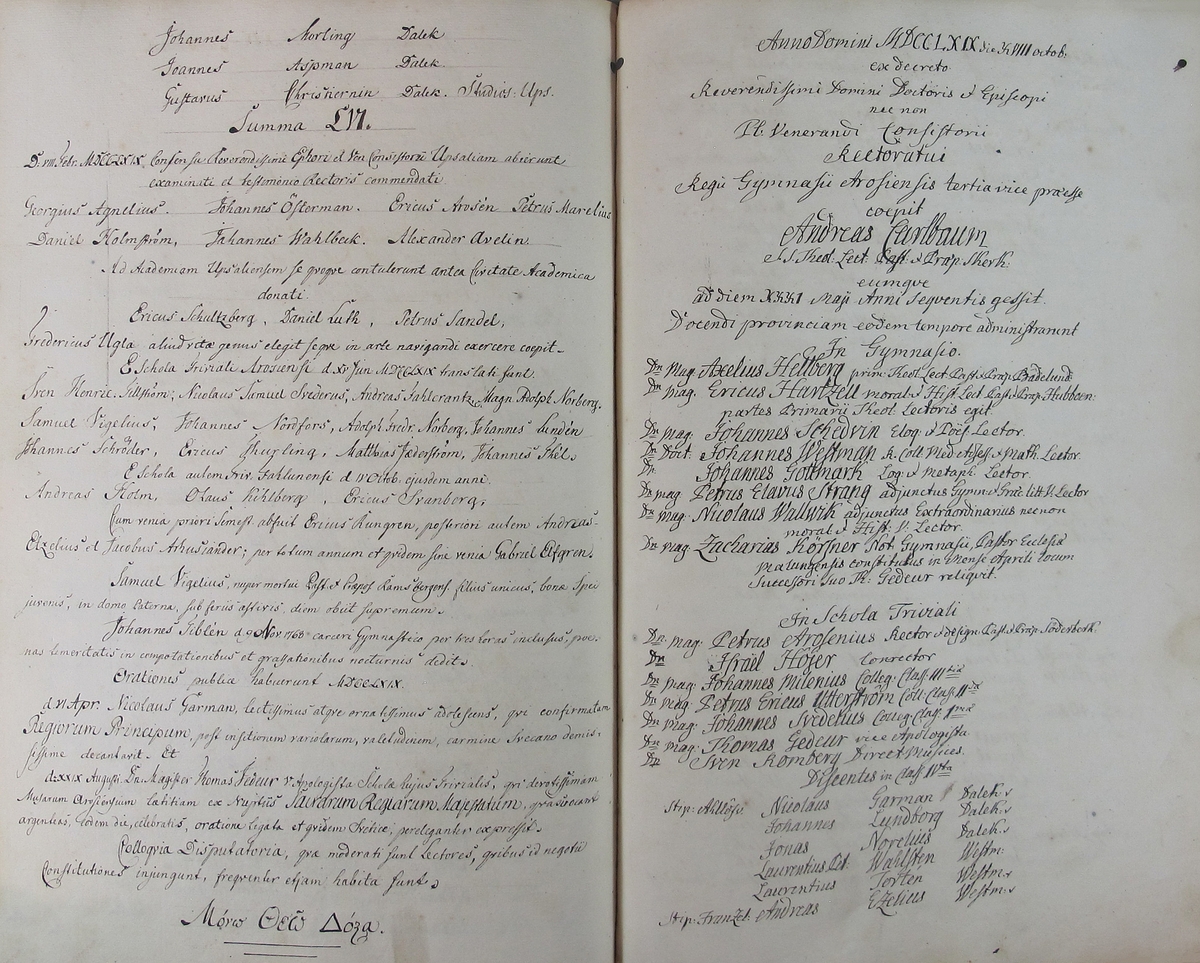 Johannes Morling Dalek.
Joannes Aspman Dalek.
Gustavus Christiernin Dalek. Studios: Ups.
Summa LVI.
D. VIII Febr. MDCCLXIX, Consensu Reverendissimi Ephori et Ven Consistorii Upsaliam abierunt
examinati et testimonio Rectoris commendati
Georgius Agnelius. Johannes Österman. Ericus Arosén Petrus Marelius
Daniel Holmström, Johannes Wahlbeck. Alexander Avelin.
Ad Academiam Upsaliensem se qvoqve contulerunt antea Civitate Academica
donati.
Ericus Schultzberg, Daniel Luth, Petrus Sandel,
Fredericus Ugla aliud vitæ genus elegit seqve in arte navigandi exercere coepit.
E Schola Triviali Arosiensi d. XV Jun MDCCLXIX translati sunt.
Sven Henric. Sillström, Nicolaus Samuel Svederus, Andreas Fahlcrantz, Magn. Adolph. Norberg.
Samuel Vigelius, Johannes Nordfors, Adolph. Fredr. Norberg, Johannes Lindén
Johannes Schröder, Ericus Thurling, Matthias Federström, Johannes Thel.
E Schola autem Triv. Fahlunensi d. IV Octob. ejusdem anni.
Andreas Holm, Olaus Kihlberg, Ericus Svanberg.
Cum venia priori Semest. abfuit Ericus Rungren, posteriori autem Andreas
Ezelius et Jacobus Arhusiander; per totum annum et qvidem sine venia Gabriel Elfgren.
Samuel Vigelius, nuper mortui Past. et Præpos. Ramsbergens. filius unicus, bonæ Spei
juvenis, in domo paterna, sub feriis æstivis, diem obiit supremum.
Johannes Tiblén d. 9 Nov 1768 carceri Gymnastico per tres horas inclusus, poe-
nas temeritatis in compotationibus et grassationibus nocturnis dedit.
Orationes publice habuerunt MDCCLXIX.
d. VI Apr. Nicolaus Garman, lectissimus atqve ornatissimus adolescens, qvi confirmatam
Regiorum Principum, post insitionem variolarum, valetudinem, carmine Svecano demis-
sissime decantavit. Et
d. XXIX Augusti. Dn. Magister Thomas Gedeur V. Apologista Scholæ hujus Trivialis, qvi devotissimam
Musarum Arosiensium lætitiam ex Nuptiis Sacrarum Regiarum Majestatum, qvas vocant
argenteas, eodem die, celebratis, oratione ligata et qvidem Svetice, pereleganter expressit.
Colloqvia Disputatoria, qvæ moderati sunt Lectores, qvibus id negotii
Constitutiones injungunt, freqventer etjam habita sunt.
Μόνω Θεῶ Δόξα.
Anno Domini MDCCLXIX die XVIII octob:
ex decreto
Reverendissimi Domini Doctoris & Episcopi
nec non
Pl: Venerandi Consistorii
Rectoratui
Regii Gymnasii Arosiensis tertia vice præesse
coepit
Andreas Carlbaum
S.S. Theol. Lect. Past. & Præp. Skerk.
eumqve
ad diem XXXI Maji Anni Seqventis gessit.
Docendi provinciam eodem tempore administrarunt
In Gymnasio.
Dn. Mag. Axelius Hellberg prim. Theol. Lect. Past. & Præp. Badelund
Dn. mag. Ericus Hartzell moral. & Hist. Lect. Past. & Præp. Hubboen:
partes Primarii Theol. Lectoris egit.
Dn. mag. Johannes Schedvin Eloq. & Poës. Lector.
Dn. Doct. Johannes Westman R. Coll. Med. Assess. & Math. Lector.
Dn. Johannes Gottmark Log. & Metaph. Lector.
Dn. mag. Petrus Elavus Strang adjunctus Gymn. & Græc. litt. V. Lector
Dn. mag. Nicolaus Wallwik adjunctus Extraordinarius necnon
moral. & Hist. V. Lector.
Dn. mag. Zacharias Körsner Not. Gymnasii, Pastor Ecclesiæ
Malungensis constitutus in Mense Aprili locum
Successori suo Th. Gedeur reliqvit.
In Schola Triviali
Dn. mag. Petrus Arosenius Rector & design. Past. & Præp. Söderberk.
Dn. Israël Höjer Conrector
Dn. mag. Johannes Milenius Colleg. Class. IIItiæ
Dn. mag. Petrus Ericus Utterström Coll. Class. IIdæ
Dn. mag. Johannes Svedelius Colleg. Class. Imæ
Dn. mag. Thomas Gedeur vice Apologista
Dn. Sven Romberg Direct. Musices.
Discentes in Class. IVta
Stip: Ahllöfs: Nicolaus Garman Dalek.
Johannes Lundborg Dalek.
Jonas Norelius Dalek.
Laurentius Pet. Wahlsten Westm.
Laurentius Torten Westm.
Stip: Franzel: Andreas Ezelius Westm.